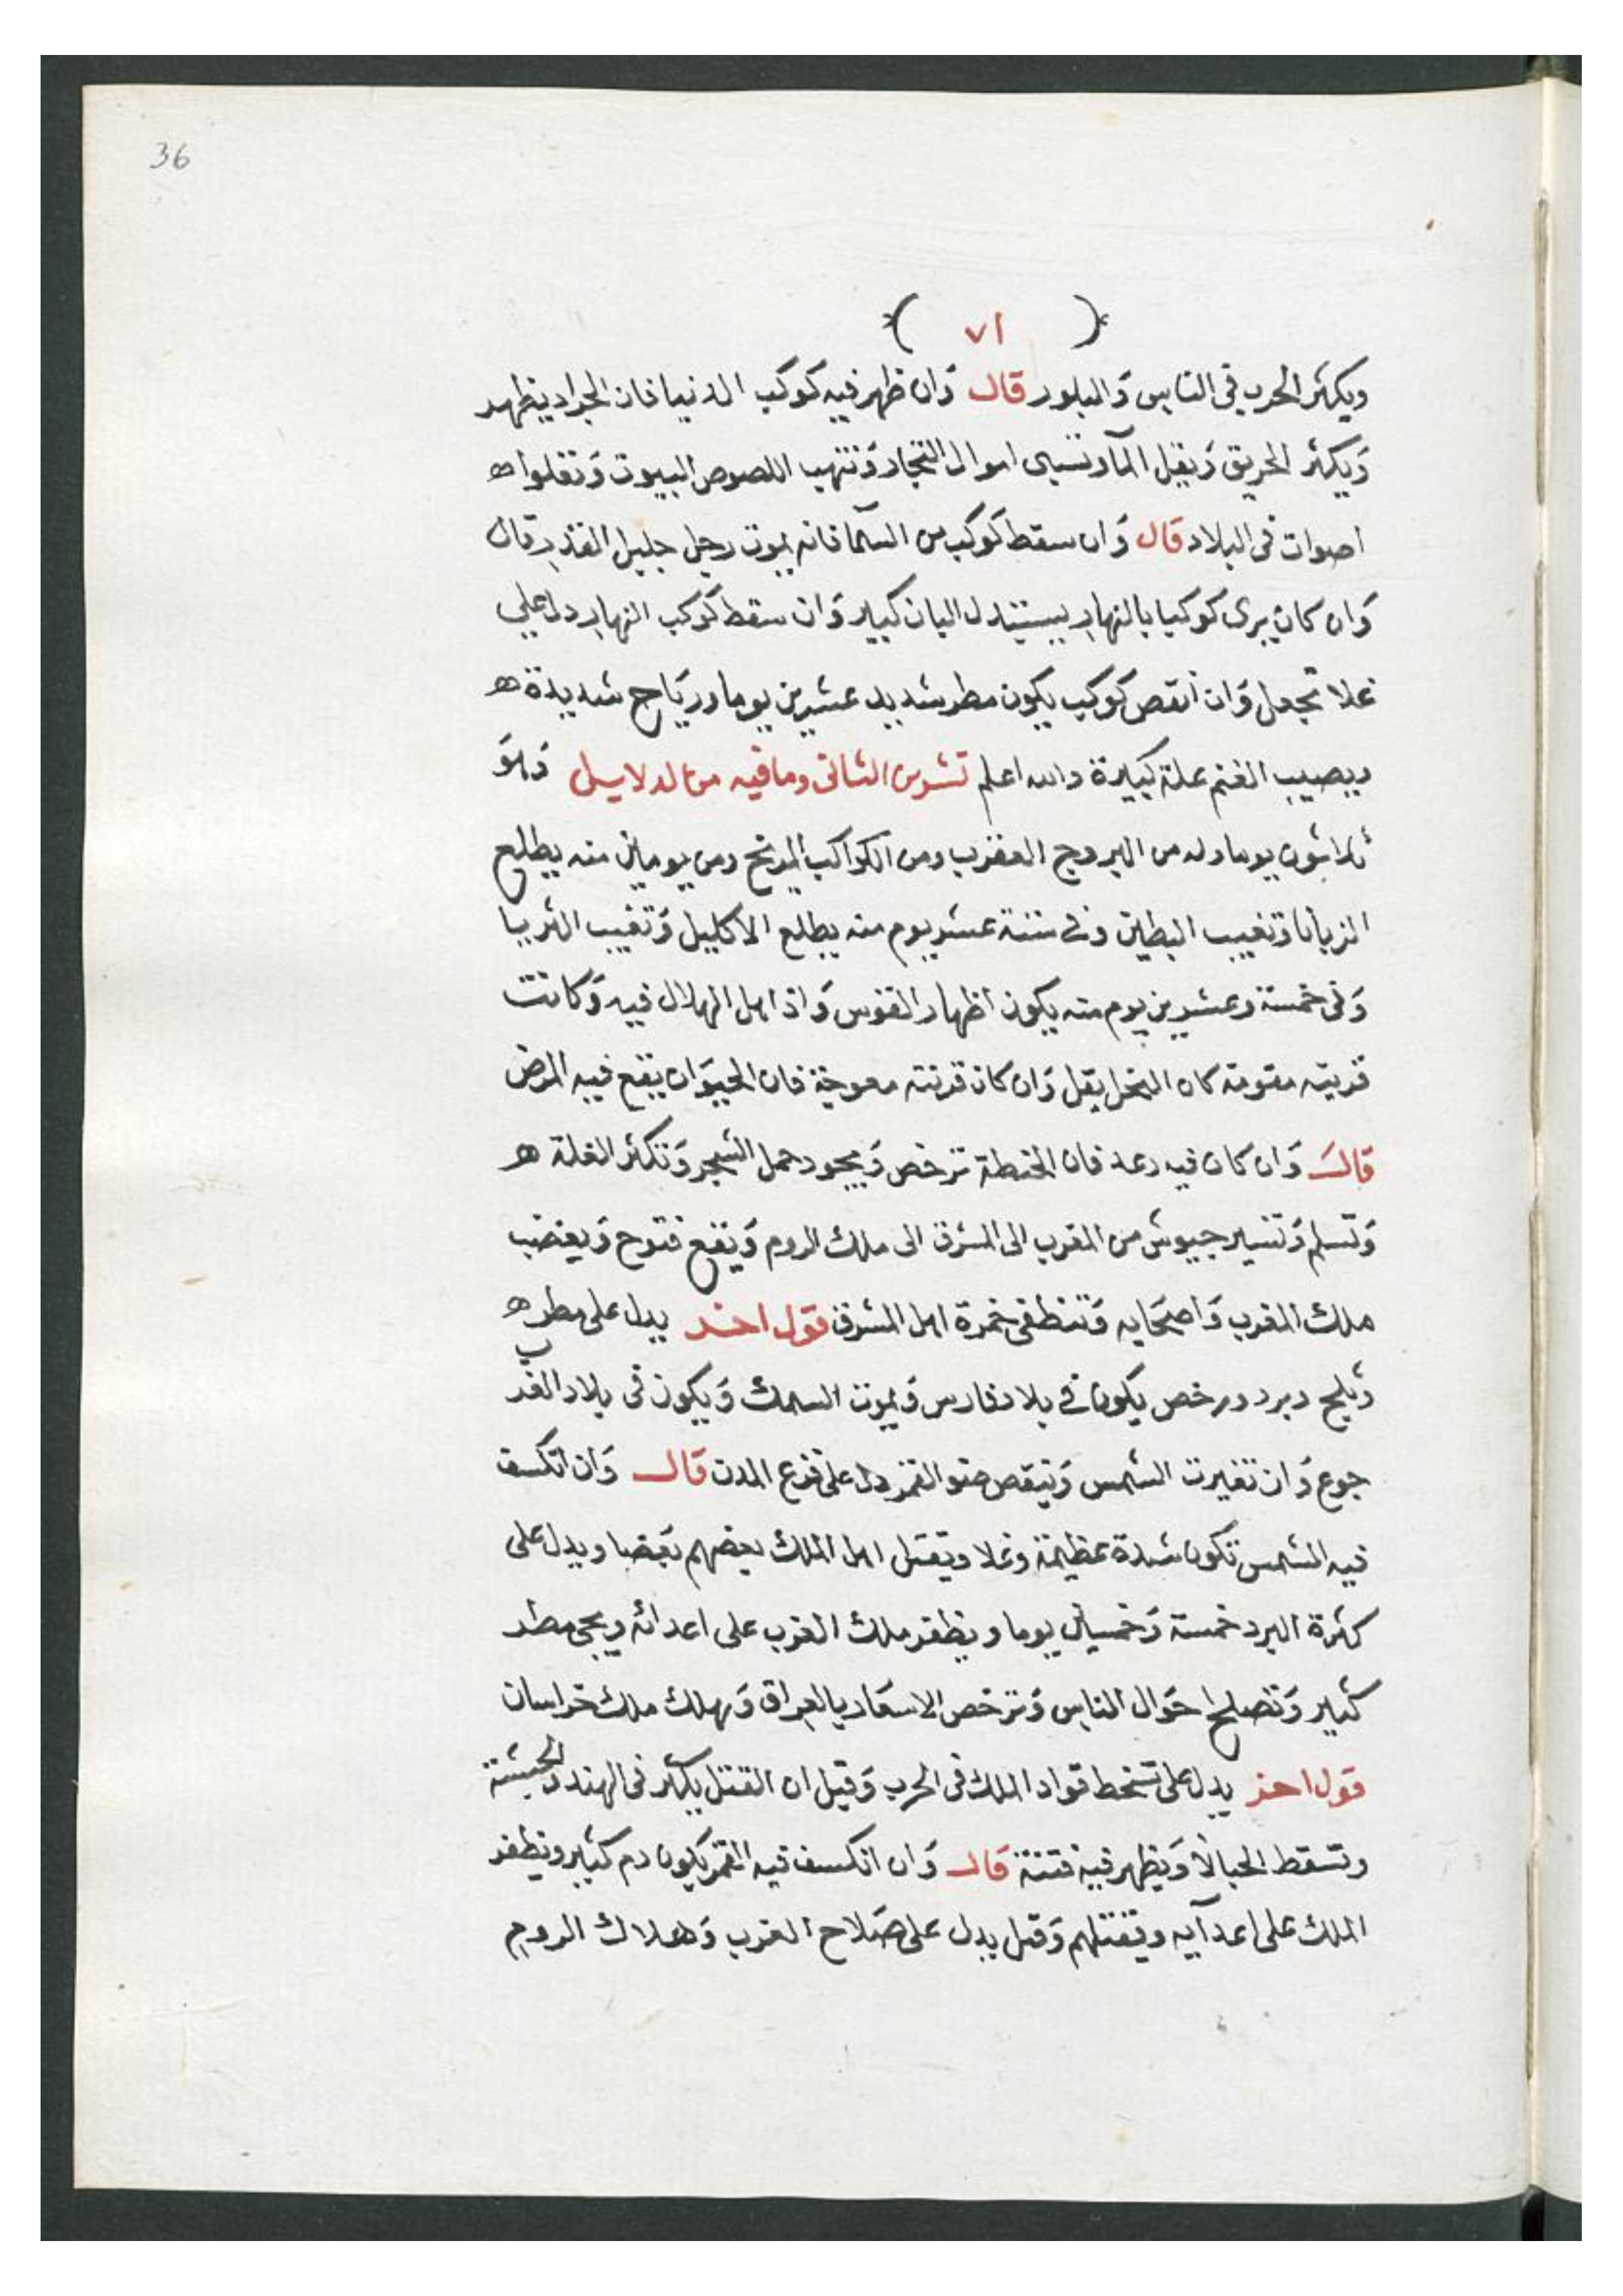 36
( ٧١ )
ويكثر الحرب في الناس والبلور قال وان ظهر فيه كوكب الدنيا فان الجراد يظهر
ويكثر الحريق ويقل المآ وتسبى اموال التجار وتنهب اللصوص البيوت وتغلوا ه
اصوات في البلاد قال وان سقط كوكب من السمآ فانه يموت رجل جليل القدر قال
وان كان يرى كوكبا بالنهار كبير وان سقط كوكب النهار دل علي
غلا تجعل وان انقص كوكب يكون مطر شديد عشرين يوما ورياح شديدة ه
ويصيب الغنم علة كبيرة والله اعلم تشرين الثاني وما فيه من الدلايل وهو
ثلاثون يوما وله من البروج العقرب ومن الكواكب المريخ ومن يومين منه يطلع
الزبانا وتغيب البطين وفي ستة عشر يوم منه يطلع الاكليل وتغيب الثريا
وفي خمسة وعشرين يوم منه يكون اظهار القوس واذ اهل الهلال فيه وكانت
قرنيته مقومة كان النحل يقل وان كان قرنته معوجة فان الحيوان يقع فيه المرض
قال وان كان فيه رعد فان الحنطة ترخص ويجود حمل الشجر وتكثر الغلة ه
وتسلم وتسير جيوش من المغرب الى المشرق الى ملك الروم ويقع فتوح ويغضب
ملك المغرب واصحابه وتنطفى خمرة اهل المشرق قول اخر يدل على مطر ه
وثلج وبرد ورخص يكون في بلاد فارس ويموت السمك ويكون في بلاد الغرب
جوع وان تغيرت الشمس وينقص ضو القمر دل على فزع المدن قال وان انكسف
فيه الشمس تكون شدة عظيمة وغلا ويقتل اهل الملك بعضهم بعضا ويدل على
كثرة البرد خمسة وخمسين يوما ويظفر ملك الغرب على اعدائه ويجى مطر
كثير وتصلح احوال الناس وترخص الاسعار بالعراق ويهلك ملك خراسان
قول اخر يدل على تسخط قواد الملك في الحرب وقيل ان القتل يكثر في الهند والحبشة
وتسقط الحبالا ويظهر فيه فتنة قال وان انكسف فيه القمر يكون دم كثير ويظفر
الملك على اعدآيه ويقتلهم وقيل يدل على صلاح العرب وهلاك الروم